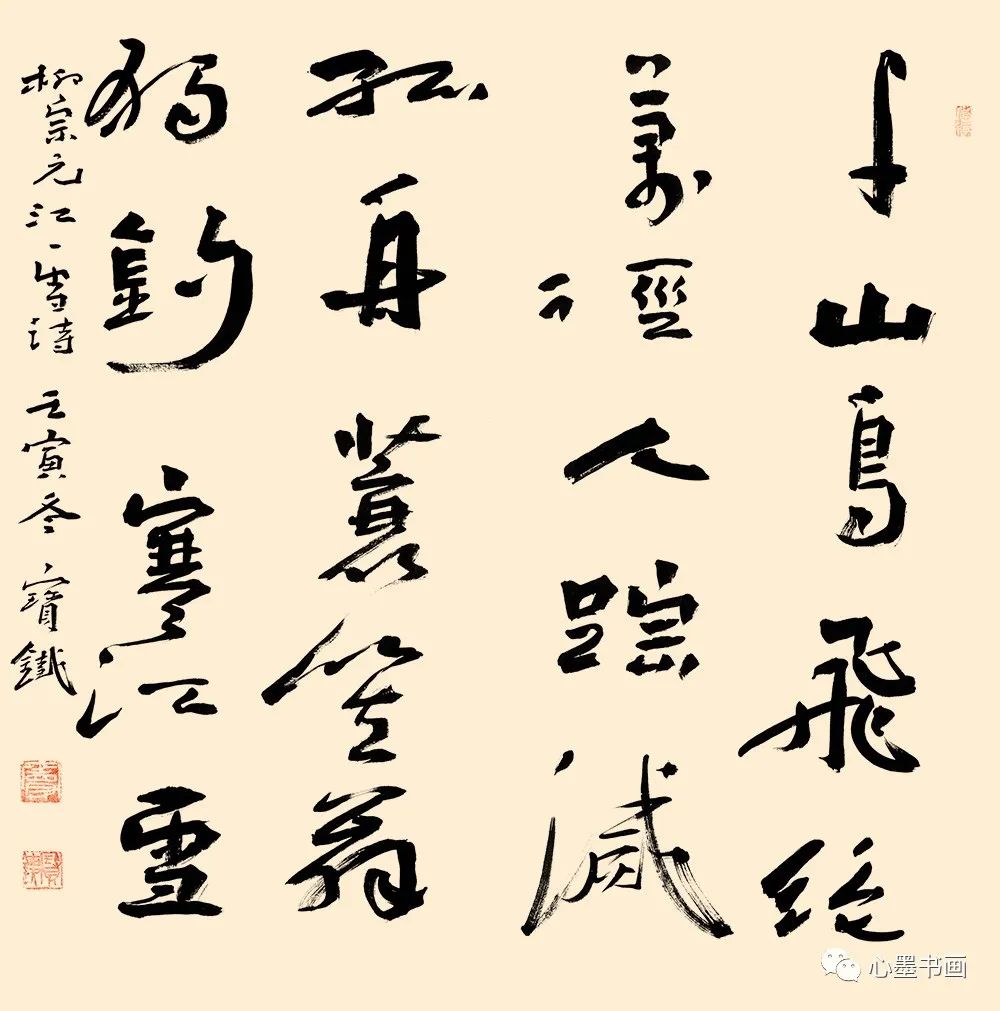 千山鳥飛絕
萬徑人踪滅
孤舟蓑笠翁
獨釣寒江雪
柳宗元江雪詩 壬寅冬 寶鐵
心墨书画